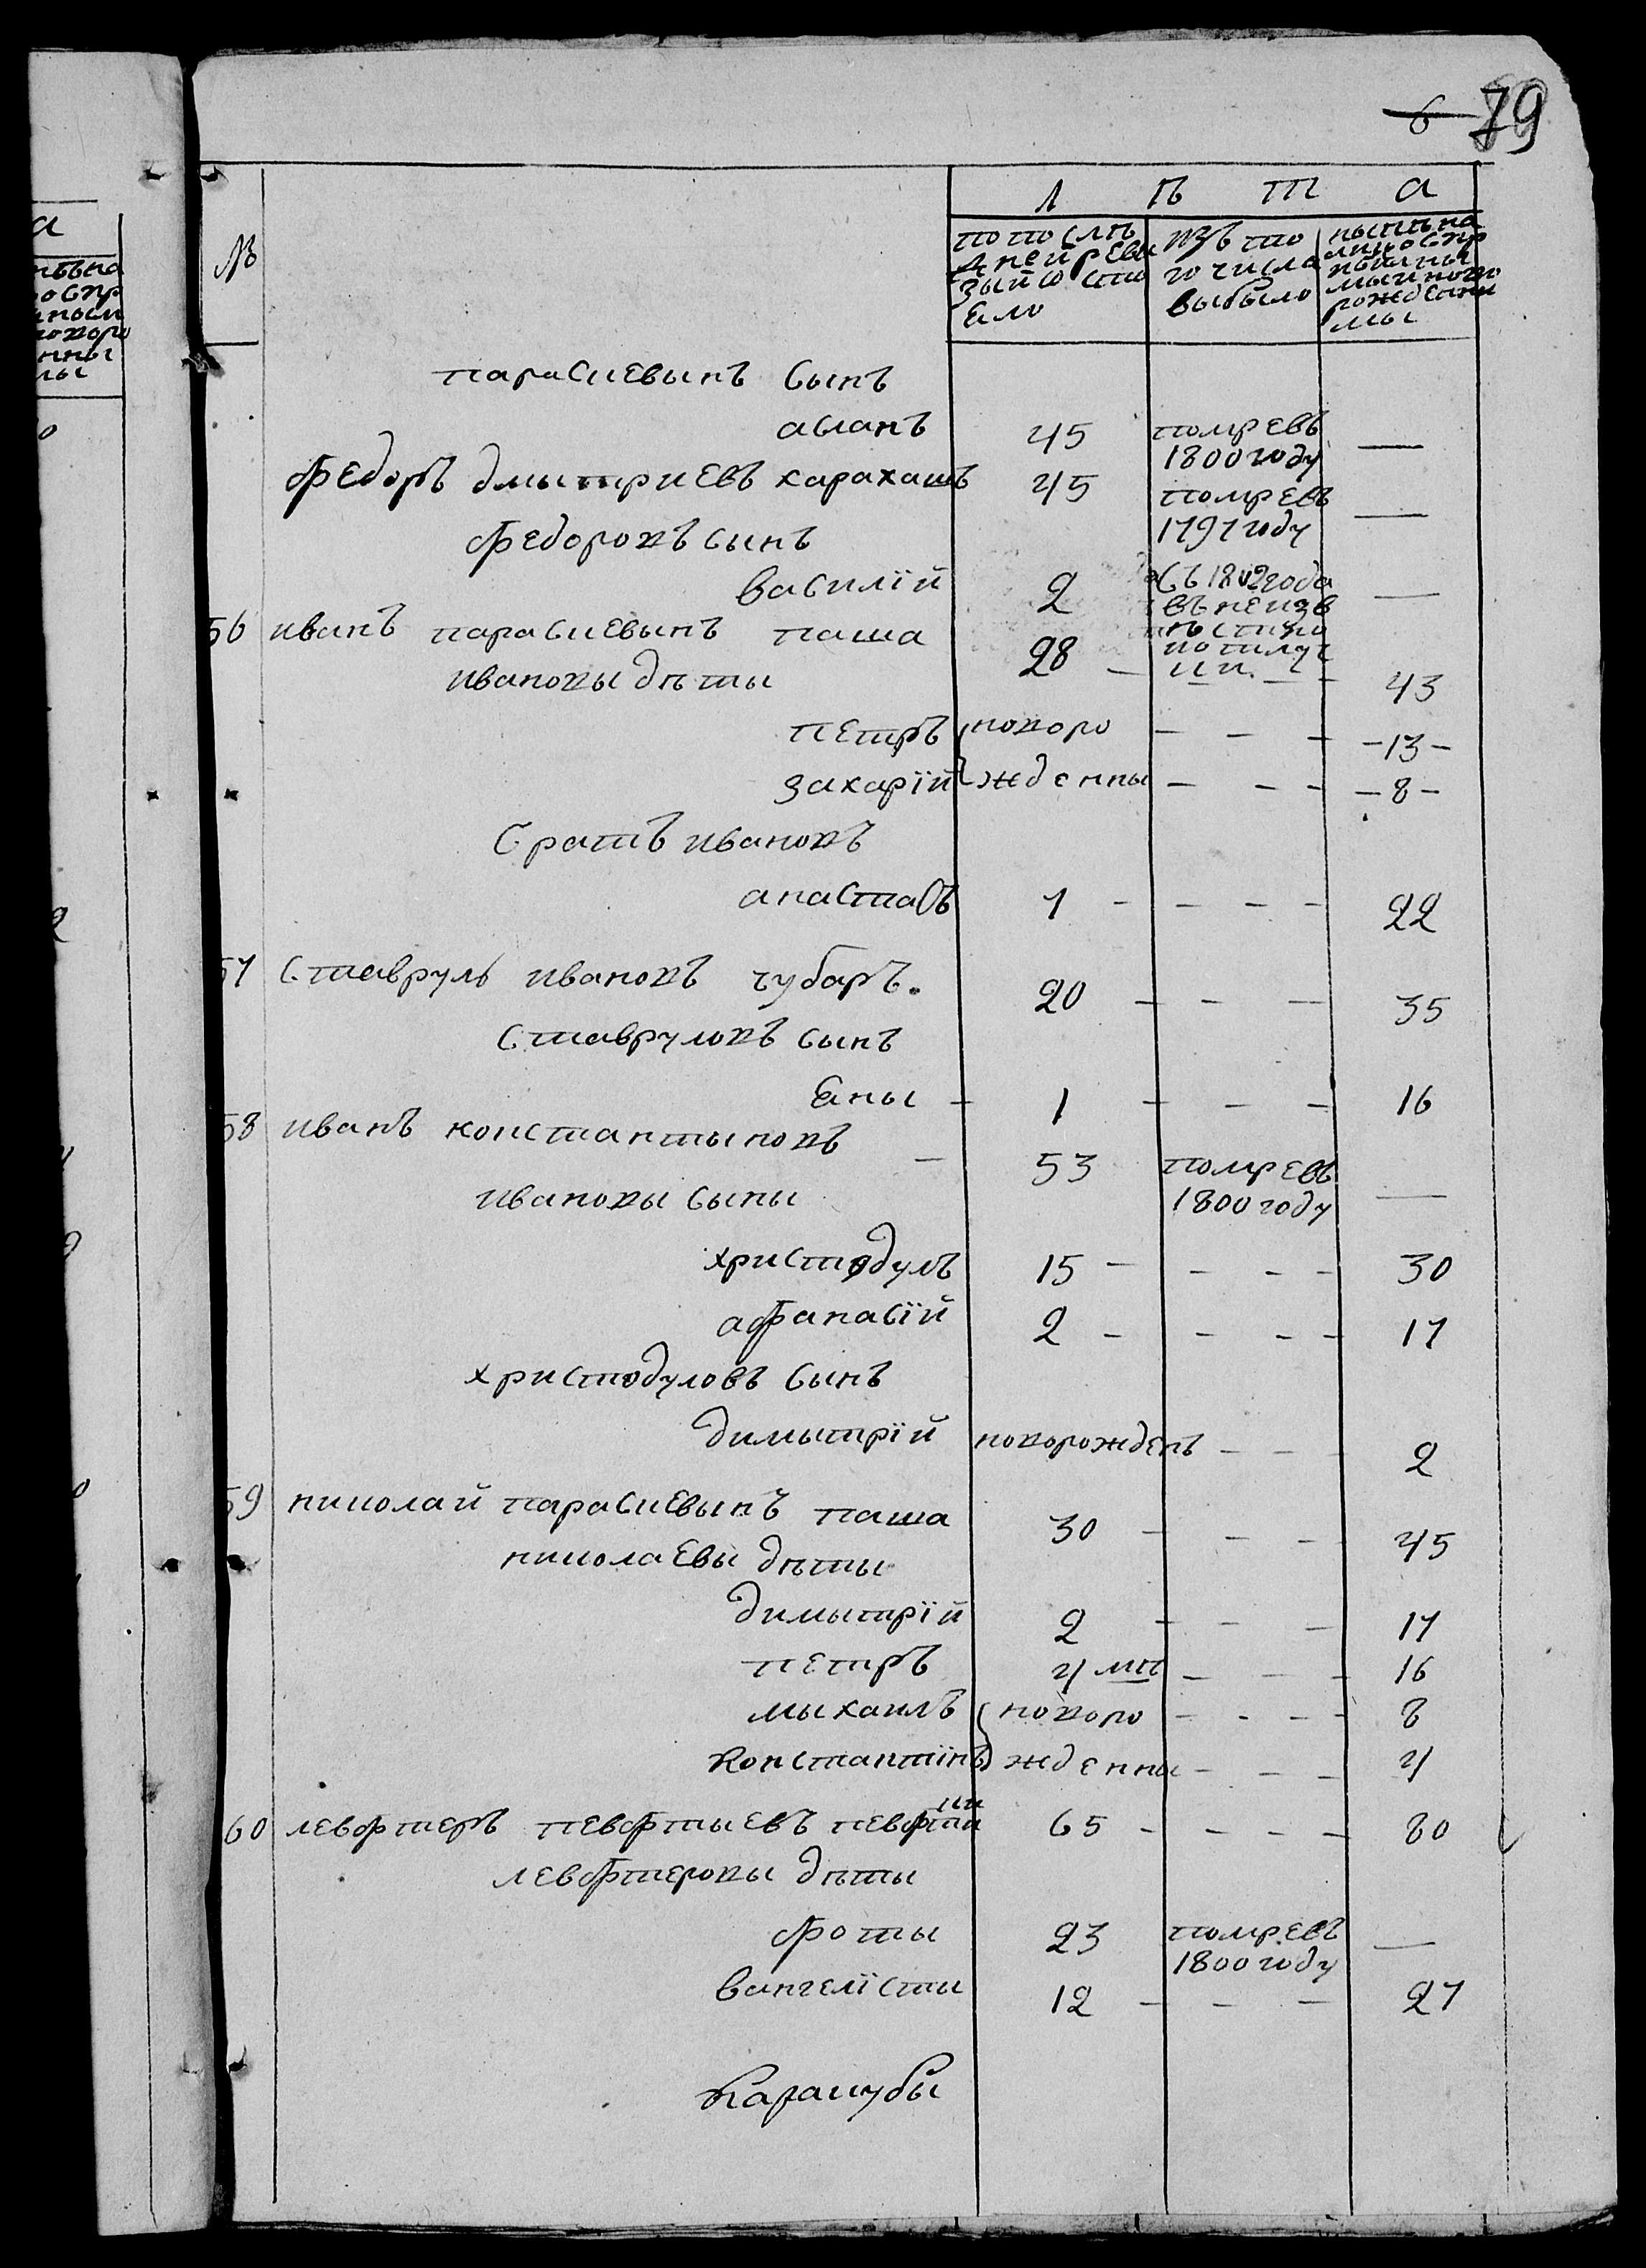 6 79
Л ѣ т а
№
по посли
дней реви
зыи состо
яло
изъ то
го числа
выбыло
ныннѣ на
лицо спр
рожденни
мы
парасиевынъ сынъ
асланъ 45 помревъ 1800 году —
Федоръ дмытриевъ карахашъ 45 помревъ 1797 году —
Федоровъ сынъ
василїй 2 съ 1802 года въ неизв —
56 иванъ парасиевынъ паша 28 — 43
ивановы дѣты
петръ новоро — — — -13-
захарїй жденны — — — -8-
братъ ивановъ
анастасъ 1 - — — — 22
57 Ставруль ивановъ чубаръ. 20 — — — 35
Ставруловъ сынъ
яны — 1 — — — 16
58 иванъ константыновъ — 53 помревъ 1800 году —
ивановы сыны
христодулъ 15 — — — — 30
афанасїй 2 — — — — 17
христодуловъ сынъ
димытрїй новорожденъ — — 2
59 николай парасиевынъ паша 30 — — — 45
николаевы дѣты
димытрїй 2 — — — 17
петръ 4 мц — — — 16
мыхаилъ новоро — - — — 8
константїнъ жденны — — — 4
60 левфтеръ певфтыевъ 65 - — — — 80
левфтеровы дѣты
фоты 23 помревъ 1800 году —
вангелїсты 12 — — — 27
Карашубы
а